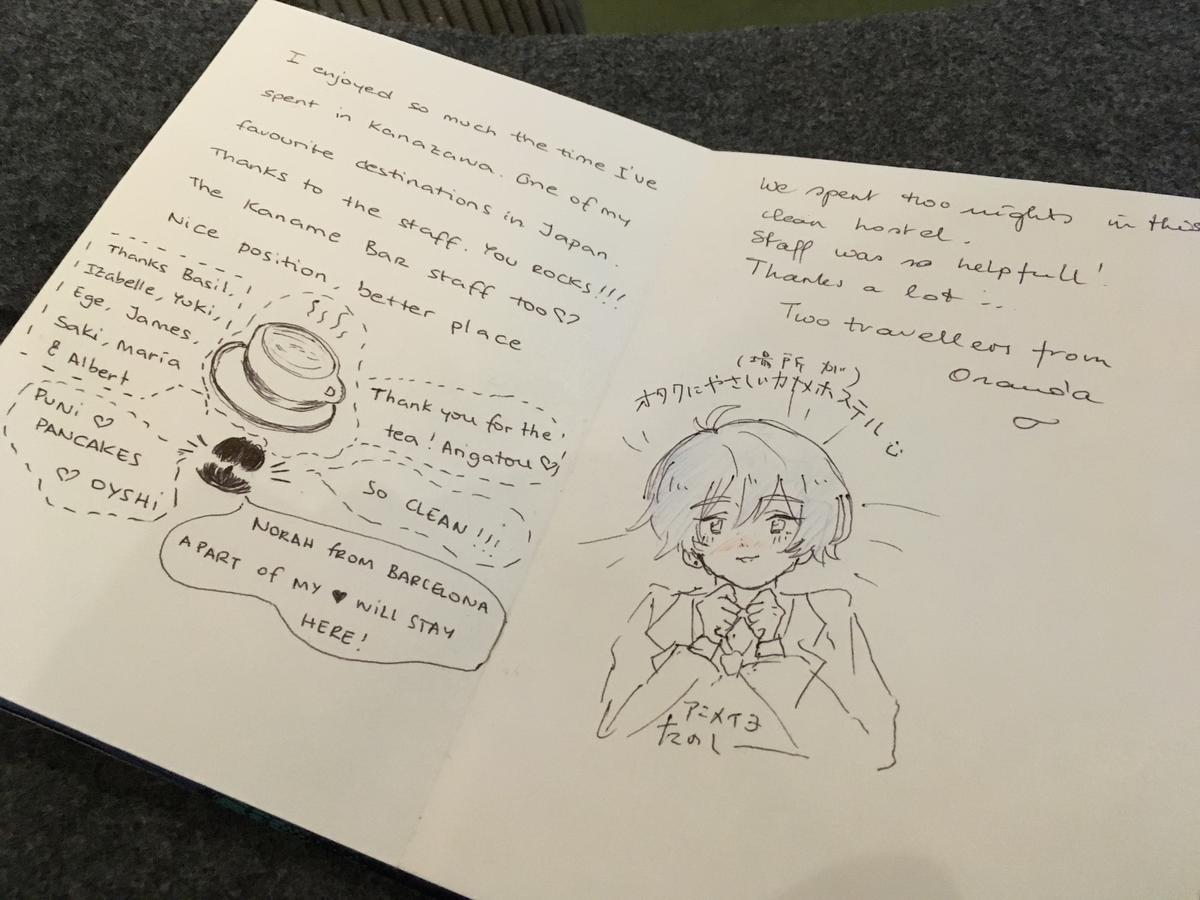 I enjoyed so much the time I've
spent in Kanazawa. One of my
favourite destinations in Japan.
Thanks to the staff. You ROCKS!!!
The Kaname Bar staff too♡
Nice position, better place
Thanks Basil,
Izabelle, Yuki,
Ege, James,
Saki, Maria
& Albert
PUNi ♡
PANCAKES
♡ OYSHi
Thank you for the
tea! Arigatou ♡
SO CLEAN!!!
NORAH FROM BARCELONA
A PART OF MY ♥ WILL STAY
HERE!
We spent two nights in this
clean hostel.
Staff was so helpfull!
Thanks a lot :.
Two travellers from
Oranda
(場所が)
オタクにやさしいカナメホステル
アニメイコ
たのしー